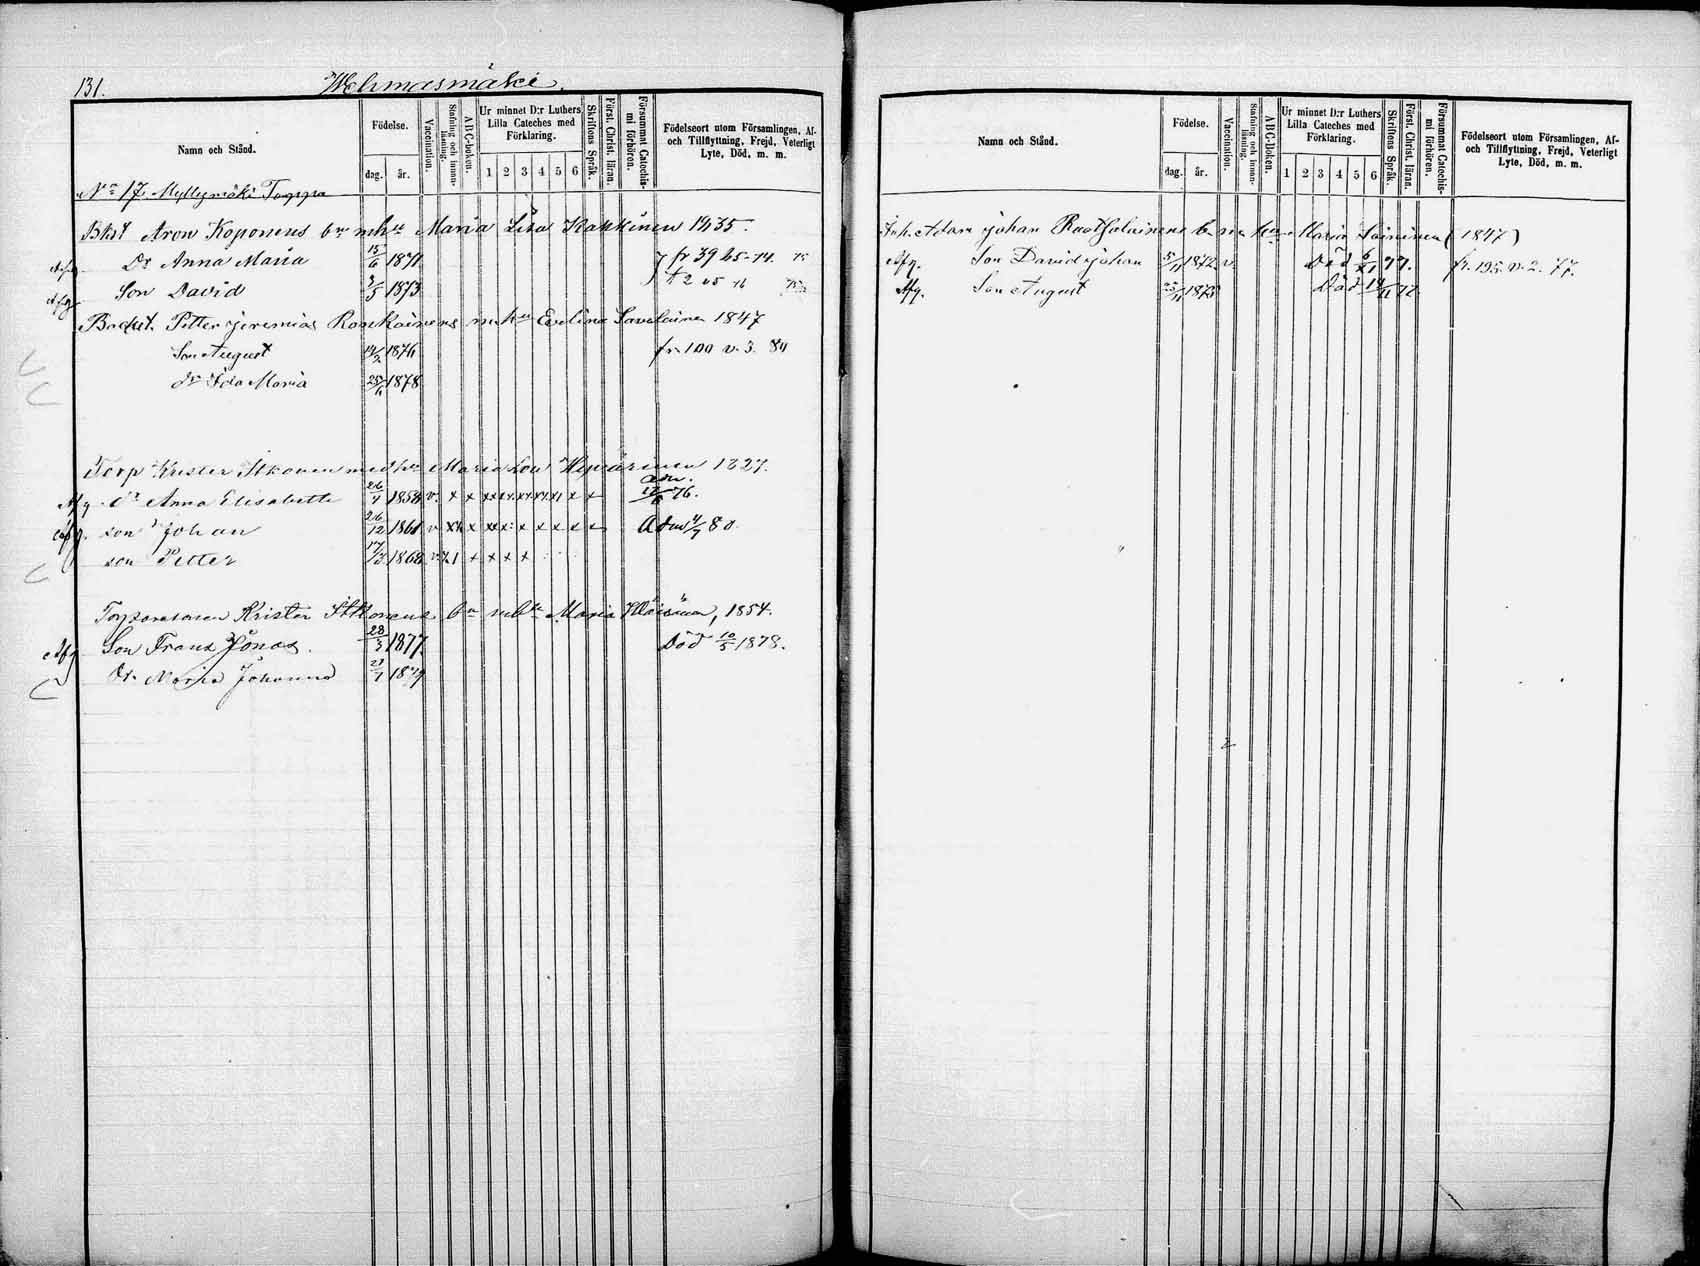 131. Wehmasmäki.
Namn och Stånd.
Födelse.
dag. år.
Vaccination.
Stafning och innan-läsning.
ABC-boken.
Ur minnet D:r Luthers Lilla Cateches med Förklaring.
1 2 3 4 5 6
Skriftens Språk.
Först. Christ. läran.
Försummat Catechismi förhören.
Födelseort utom Församlingen, Af- och Tillflyttning, Frejd, Veterligt Lyte, Död, m. m.
No 17. Myllymäki Torppa
Bkst Aron Koponens bn mhu Maria Lisa Kakkinen 1835.
Afg. Dr Anna Maria 15/6 1871 fr 39 65-74 75
Afg. Son David 2/5 1873
Backst. Petter Jeremias Ronkainens m hu Evelina Savolainen 1847
Son August 14/2 1876 fr. 100 v. 3. 80
dr Ida Maria 25/11 1878
Torp Krister Itkonen med hu Maria Lou 1827.
Afg. dr Anna Elisabeth 26/4 1858 v. x x xx xx xx xx x x 76.
Afg. son Johan 26/12 1861 v xx x xx x x x x x Adm 4/7 80
son Petter 17/3 1868 v x 1 x x x x
Torparesonen Krister Itkonens bn mhu Maria Väisänen, 1854.
Afg Son Frans Jonas. 28/3 1877. Död 10/5 1878.
Dr. Maria Johanna 21/1 1879
Namn och Stånd.
Födelse.
dag. år.
Vaccination.
Stafning och innan-läsning.
ABC-Boken.
Ur minnet D:r Luthers Lilla Cateches med Förklaring.
1 2 3 4 5 6
Skriftens Språk.
Först. Christ. läran.
Försummat Catechismi förhören.
Födelseort utom Församlingen, Af- och Tillflyttning, Frejd, Veterligt Lyte, Död, m. m.
Inh. Adam Johan Raatikainens bn m hu Maria Soininen (1847)
Afg. Son David Johan 5/11 1872 v. Död 6/11 77. fr. 195. v. 2. 77.
Afg. Son August 25/11 1875 Död 14/11 77